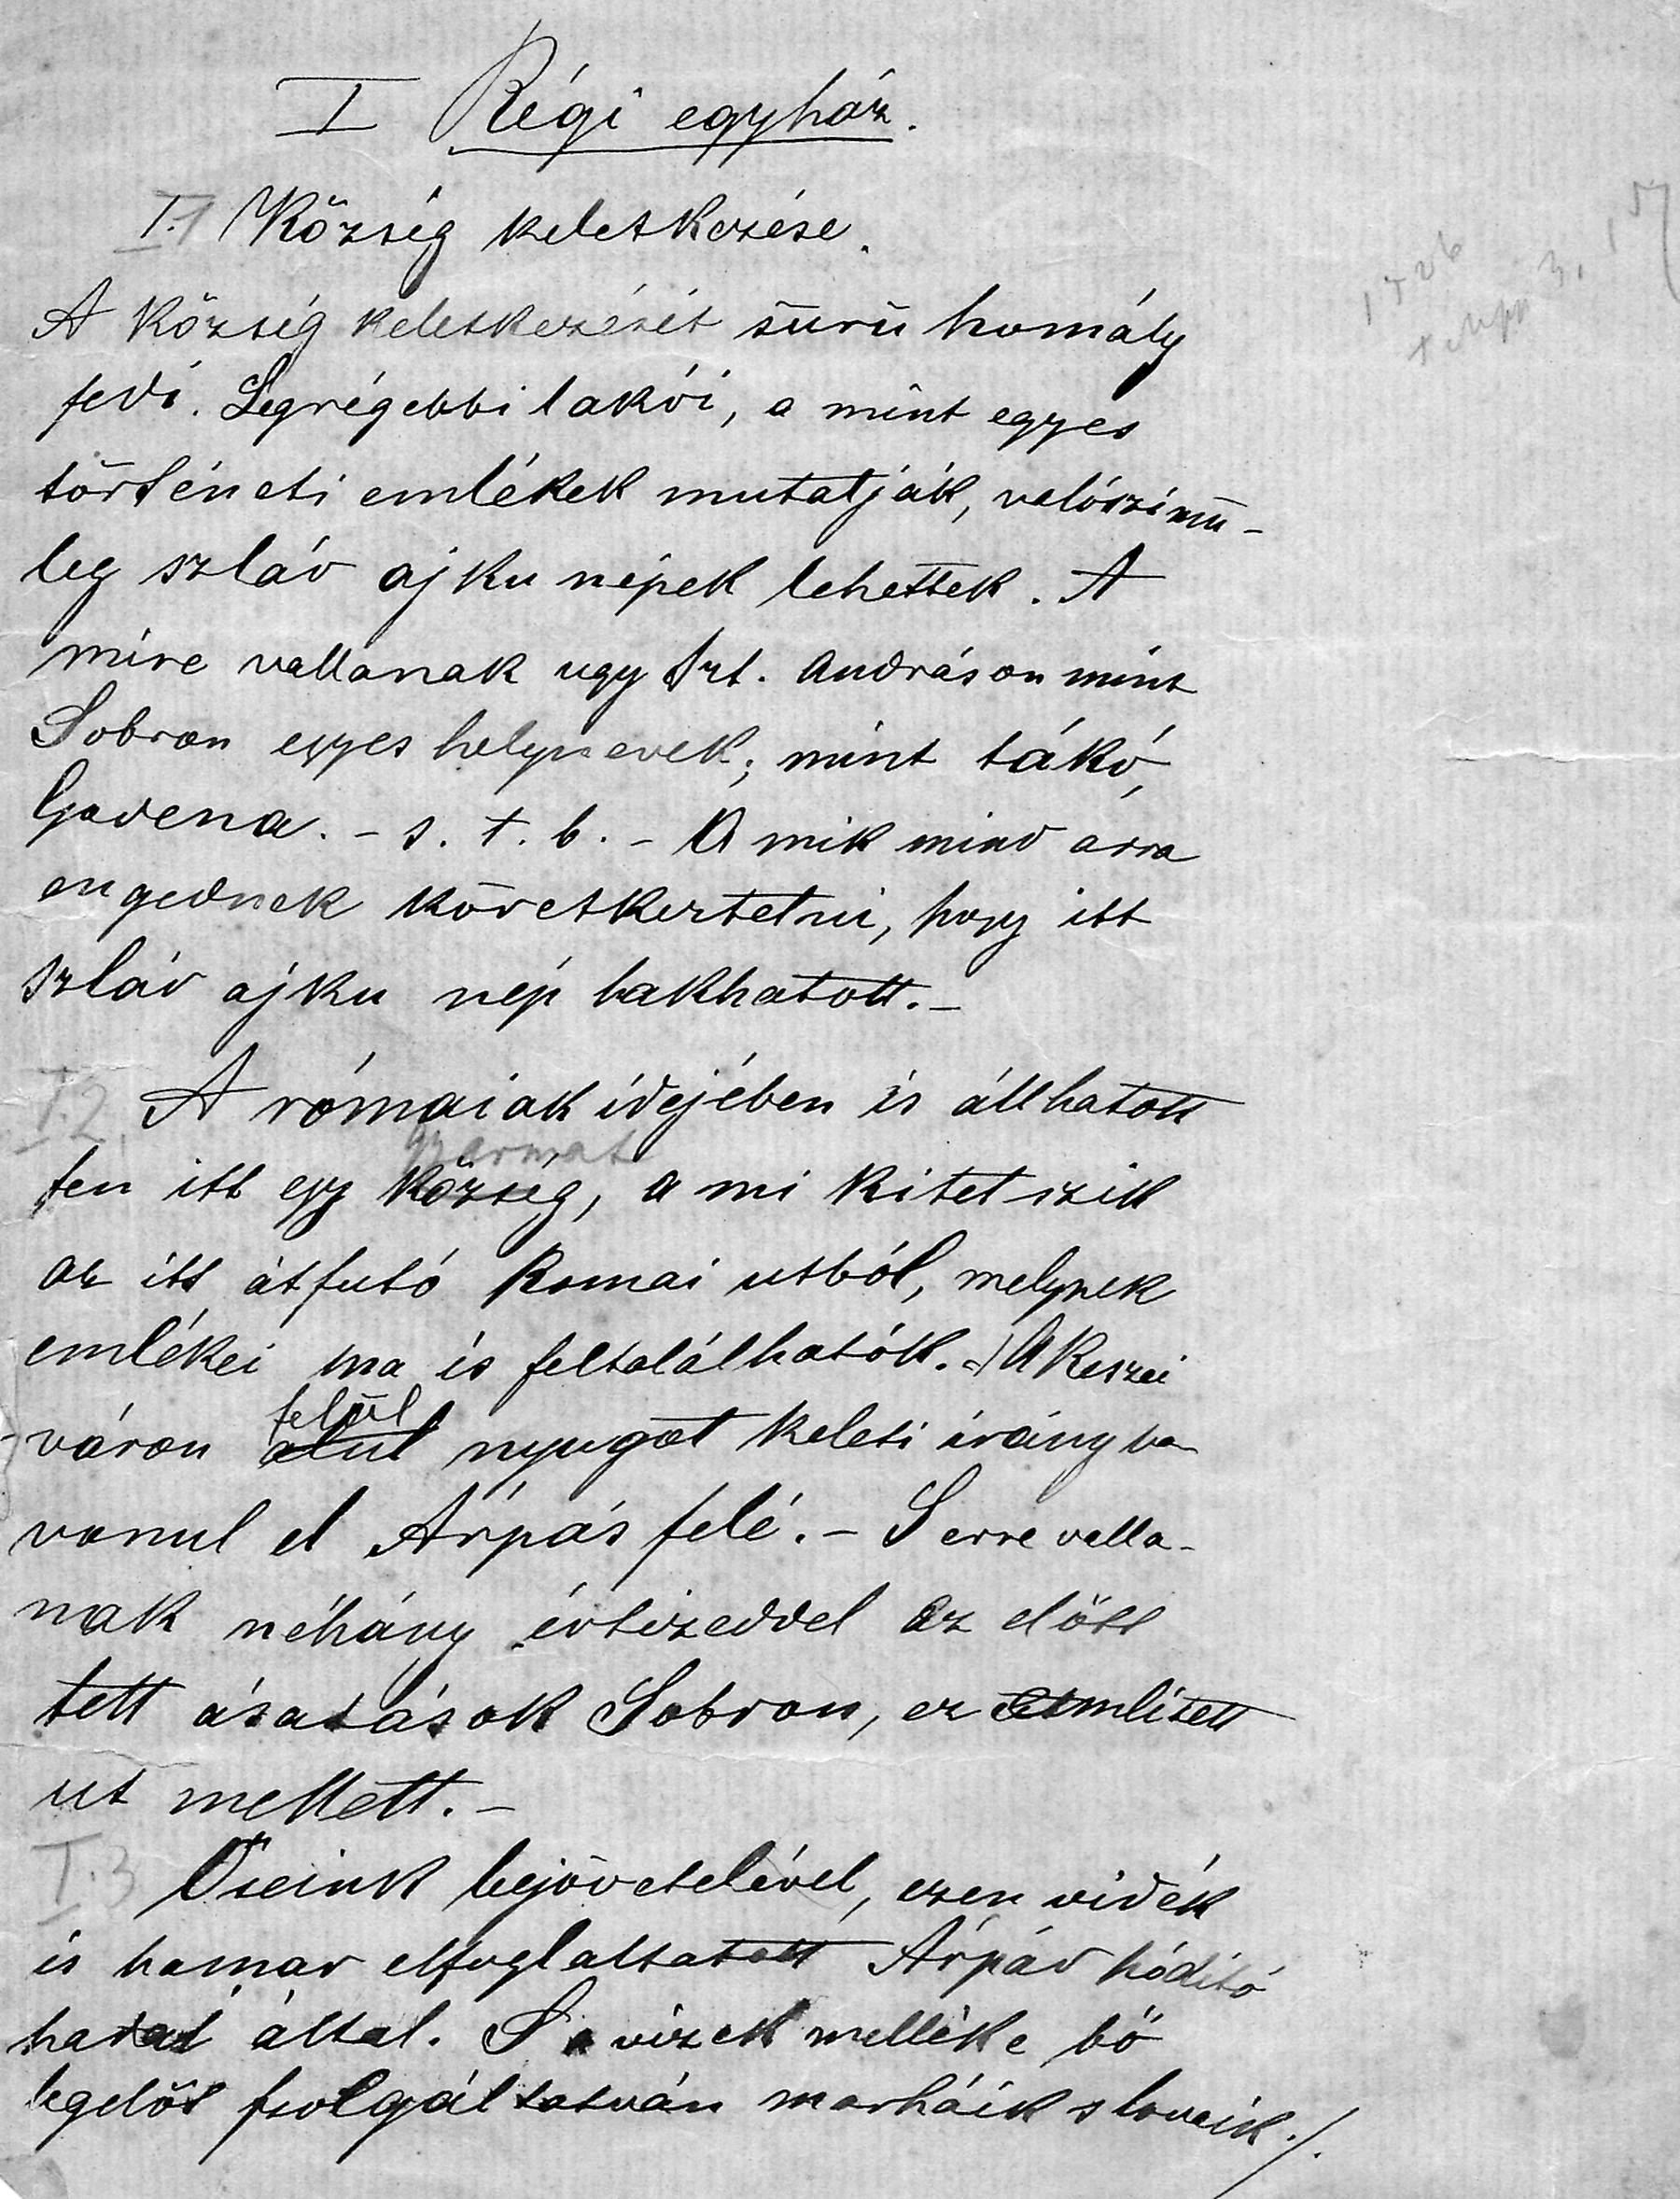 I Régi egyház.
I.1 Község keletkezése.
A község keletkezését sürü homály
fedi. Legrégebbi lakói, a mint egyes
történeti emlékek mutatják, valószinü-
leg szláv ajku népek lehettek. A
mire vallanak ugy Szt. Andráson mint
Sobron egyes helynevek; mint tákó,
Gadena. - s. t. b. - A mik mind arra
engednek következtetni, hogy itt
szláv ajku nép lakhatott. -
I.2. A rómaiak idejében is állhatott
gyarmat
fen itt egy község, a mi kitetszik
az itt átfutó Romai utból, melynek
emlékei ma is feltalálhatók. A Keszei
felül
váron alul nyugot keleti irányba
vonul el Árpás felé. - S erre valla-
nak néhány évtizeddel az elött
tett ásatások Sobron, ez említett
ut mellett. -
I.3 Őseink bejövetelével, ezen vidék
is hamar elfoglaltatott Árpád hóditó
hadai által. S a vizek melléke bő
legelőt szolgáltatván marháik s lovaik ./.